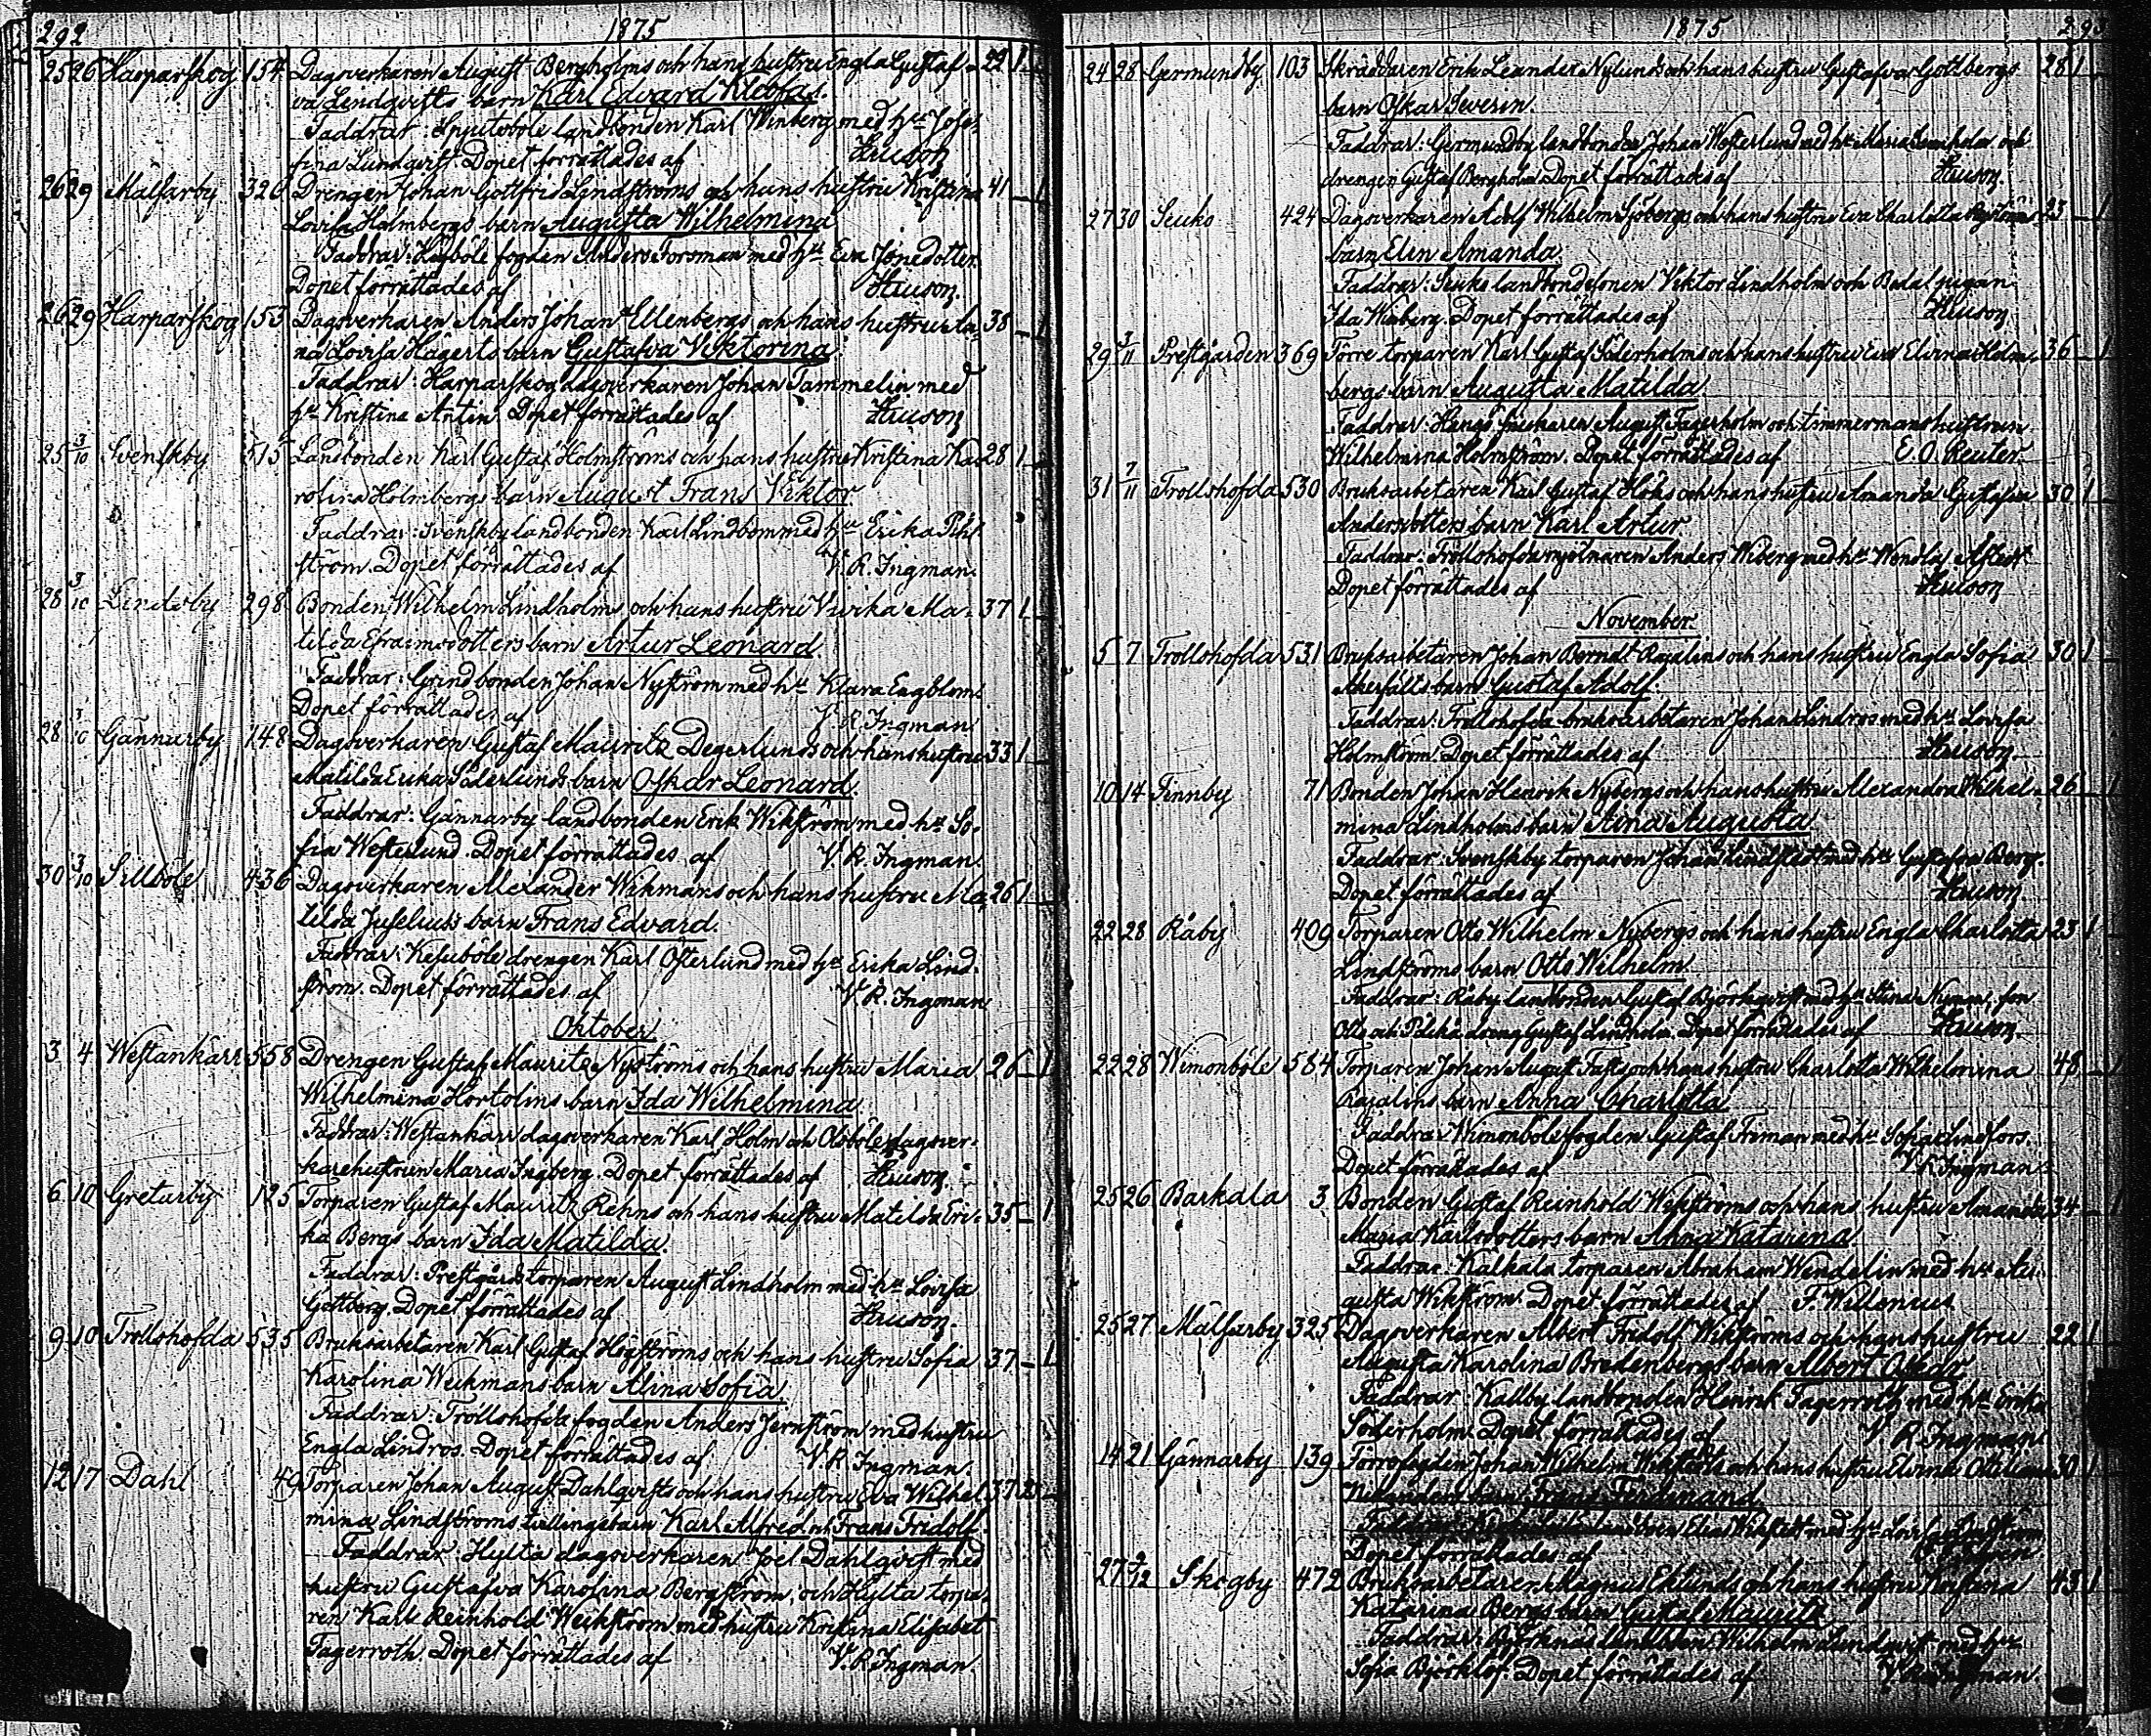 292 1875
25 26 Harparskog 154 Dagsverkaren August Bergholms och hans hustru Engla Gustaf- 22 1
va Lindqvists barn Karl Edvard Kleofas.
Faddrar: Spjutsböle landbonden Karl Winberg med hu Jose-
fina Lundqvist. Dopet förrättades af
26 29 Malsarby 326 Drengen Johan Gottfrid Lindströms och hans hustru Kristina 41 1
Lovisa Holmbergs barn Augusta Wilhelmina
Faddrar: fogden Anders Forsman med hu Eva Jonedotter.
Dopet förrättades af
26 29 Harparskog 153 Dagsverkaren Anders Johan Ellenbergs och hans hustru An- 38 1
na Lovisa Hägerts barn Gustafva Viktorina
Faddrar: Harparskog dagsverkaren Johan Tammelin med
hu Kristina Antin. Dopet förrättades af
25 3/10 Svenskby 515 Landbonden Karl Gustaf Holmströms och hans hustru Kristina Ka- 28 1
rolina Holmbergs barn August Frans Viktor
Faddrar: Svenskby landbonden Karl Lindbom med hu Erika Pihl
ström. Dopet förrättades af V. R. Ingman.
28 3/10 Lindsby 298 Bonden Wilhelm Lindholms och hans hustru Vivika Ma- 37 1
tilda Efraimsdotters barn Artur Leonard
Faddrar: bonden Johan Nyström med hu Klara Engblom.
Dopet förrättades af V. R. Ingman
28 3/10 Gännarby 148 Dagsverkaren Gustaf Mauritz Degerlunds och hans hustru 33 1
Matilda Erika Söderlunds barn Oskar Leonard.
Faddrar: Gännarby landbonden Erik Wikström med hu So-
fia Westerlund. Dopet förrättades af V. R. Ingman.
30 3/10 Sillböle 436 Dagsverkaren Alexander Wikmans och hans hustru Ma- 26 1
tilda Juselius's barn Frans Edvard.
Faddrar: drengen Karl Österlund med hu Erika Lind-
ström. Dopet förrättades af V. R. Ingman
Oktober.
3 4 Westankärr 558 Drengen Gustaf Mauritz Nyströms och hans hustru Maria 26 1
Wilhelmina Hortolins barn Ida Wilhelmina
Faddrar: Westankärr dagsverkaren Karl Holm och Olsböle dagsver-
karehustrun Maria Ingberg. Dopet förrättades af
6 10 Gretarby 125 Torparen Gustaf Mauritz Rehns och hans hustru Matilda Eri- 35 1
ka Bergs barn Ida Matilda.
Faddrar: Prestgårds torparen August Lindholm med hu Lovisa
Gottberg. Dopet förrättades af
9 10 Trollshofda 535 Bruksarbetaren Karl Gustaf Högströms och hans hustru Sofia 37 1
Karolina Weckmans barn Alina Sofia.
Faddrar: Trollshofda fogden Anders Jernström med hustru
Engla Lindros. Dopet förrättades af V. R. Ingman.
12 17 Dahl 49 Torparen Johan August Dahlqvists och hans hustru Eva Wilhel- 37 2
mina Lindströms tvillingsbarn Karl Alfred och Frans Fridolf.
Faddrar: Hylta dagsverkaren Joel Dahlqvist med
hustru Gustafva Karolina Bergström, och Hylta torpa-
ren Karl Reinhold Weckström med hustru Kristina Elisabet
Fagerroth. Dopet förrättades af V. R. Ingman.
1875 293
24 28 Germundby 103 Skräddaren Erik Leander Nylunds och hans hustru Gustafva Gottbergs 28 1
barn Oskar Severin.
Faddrar: Germundby landbonden Johan Westerlund med hu Maria och
drengen Gustaf Bergholm. Dopet förrättades af
27 30 Seuko 424 Dagsverkaren Adolf Wilhelm Sjöbergs och hans hustru Eva Charlotta 23 1
barn Elin Amanda.
Faddrar: Seuko landbondesonen Viktor Lindholm och pigan
Ida Winberg. Dopet förrättades af
29 3/11 Prestgården 369 Förre torparen Karl Gustaf Söderholms och hans hustru Eva Elvira Holm- 36 1
bergs barn Augusta Matilda
Faddrar: Hangö August Fagerholm och timmermanshustrun
Wilhelmina Holmström. Dopet förrättades af E. O. Reuter.
31 7/11 Trollshofda 530 Bruksarbetaren Karl Gustaf Höks och hans hustru Amanda Gustafva 30 1
Andersdotters barn Karl Artur
Faddrar: Trollshofda mjölnaren Anders Wiberg med hu Wendla
Dopet förrättades af
November.
5 7 Trollshofda 531 Bruksarbetaren Johan Berndt Rosalins och hans hustru Engla Sofia 30 1
Åkerfälts barn Gustaf Adolf.
Faddrar: Trollshofda bruksarbetaren Johan Lindros med hu Lovisa
Holmström. Dopet förrättades af
10 14 Finnby 71 Bonden Johan Henrik Nybergs och hans hustru Alexandra Wilhel- 26 1
mina Lindholms barn Aina Augusta
Faddrar: Svenskby torparen Johan Lindstedt med hu Gustafva Berg.
Dopet förrättades af
22 28 Råby 409 Torparen Otto Wilhelm Nybergs och hans hustru Engla Charlotta 23 1
Lindströms barn Otto Wilhelm
Faddrar: Råby landbonden Gustaf Björkqvist med hu Stina Nyman,
dreng Gustaf Lindholm. Dopet förrättades af
22 28 Wimonböle 584 Torparen Johan August Fasts och hans hustru Charlotta Wilhelmina 48 1
Rosalins barn Anna Charlotta
Faddrar: Wimonböle fogden Gustaf Friman med hu Sofia Lindfors.
Dopet förrättades af V R Ingman
25 26 Barkala 3 Bonden Gustaf Reinhold Wikströms och hans hustru Amanda 34 1
Maria Karlsdotters barn Anna Katarina
Faddrar: Kalkala torparen Abraham Wendelin med hu Au-
gusta Wikström. Dopet förrättades af F. Willenius
25 27 Malsarby 325 Dagsverkaren Albert Fridolf Wikströms och hans hustru 22 1
Augusta Karolina Bredenbergs barn Albert Oskar
Faddrar: Källby landbonden Henrik Fagerroth med hu Erika
Söderholm. Dopet förrättades af V R Ingman
14 21 Gännarby 139 Förre fogden Johan Wilhelm Wikstedts och hans hustru Elvina Ottiliana 30 1
barn Frans Ferdinand
Faddrar: Elias Wikstedt med hu Lovisa
Dopet förrättades af
27 3/12 Skogby 472 Bruksarbetaren Magnus Eklunds och hans hustru Kristina 43 1
Katarina Bergs barn Gustaf Mauritz
Faddrar: Björknäs Wilhelm Lundqvist med hu
Sofia Björklöf. Dopet förrättades af V. R. Ingman